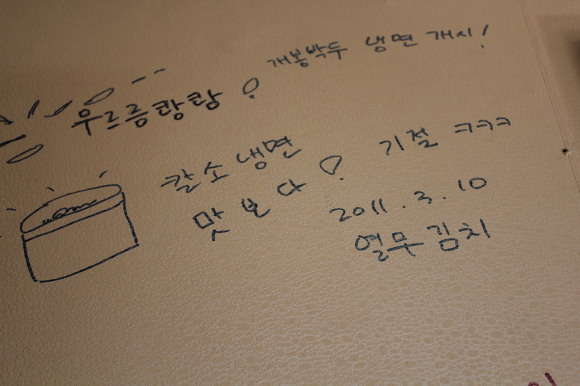 개봉박두 냉면 개시!
우르릉쾅쾅!
칼소냉면
맛보다! 기절 ㅋㅋㅋ
2011.3.10
열무김치